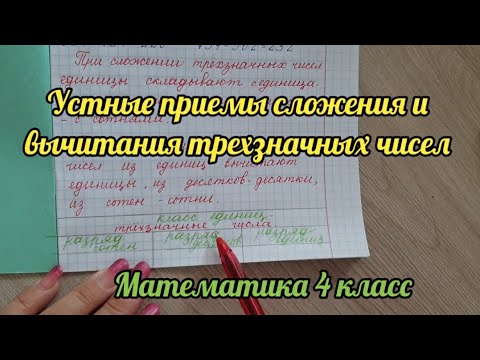 734-502=232
При сложении трехзначных чисел
единицы складывают с единица-
Устные приемы сложения и
- с сотнями.
вычитания трехзначных чисел
чисел из единиц вычитают
единицы, из десятков-десятки,
из сотен-сотни.
класс единиц
трёхзначные числа
разряд разряд разряд
сотен десятков единиц
Математика 4 класс